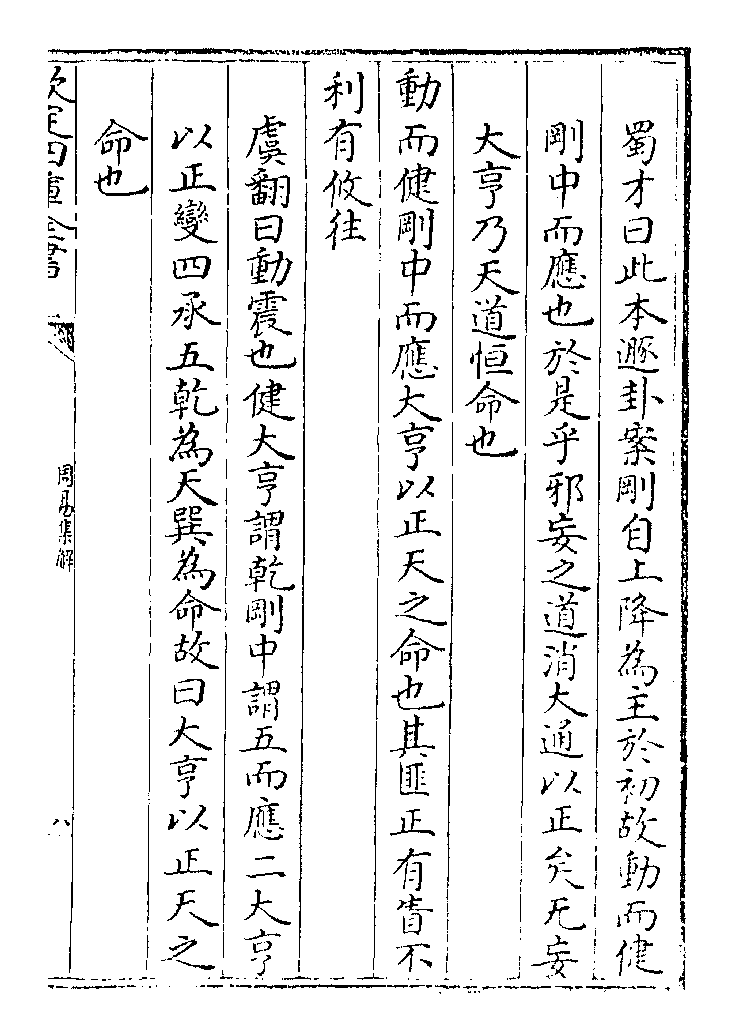 蜀才曰此本遯卦案剛自上降為主於初故動而健
剛中而應也於是乎邪妄之道消大通以正矣无妄
大亨乃天道恒命也
動而健剛中而應大亨以正天之命也其匪正有眚不
利有攸往
虞翻曰動震也健大亨謂乾剛中謂五而應二大亨
以正變四承五乾為天巽為命故曰大亨以正天之
命也
欽定四庫全書
周易集解
八